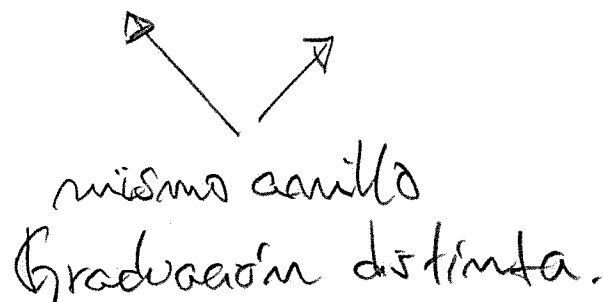 mismo anillo
Graduación distinta.